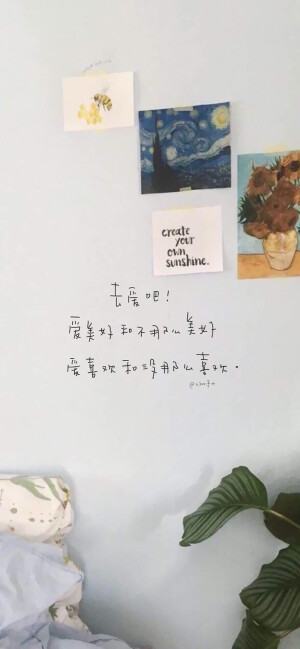 create
your
own
sunshine.
去爱吧!
爱美好和不那么美好
爱喜欢和没那么喜欢.